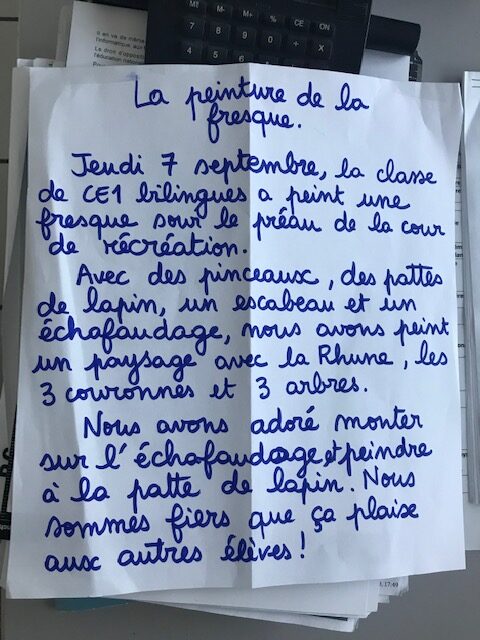 en va de même
l'informatique aux
Le droit d'opposi
MU
M-
M+
%
CE
ON
7
8
9
La peinture de la
fresque.
Jeudi 7 septembre, la classe
de CE1 bilingues a peint une
fresque sour le préau de la cour
de récréation.
Avec des pinceaux, des pattes
de lapin, un escabeau et un
échafaudage, nous avons peint
un paysage avec la Rhune, les
3 couronnes et 3 arbres.
Nous avons adoré monter
sur l'échafaudage et peindre
à la patte de lapin. Nous
sommes fiers que ça plaise
aux autres élèves !